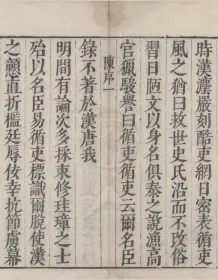 時漢瀍嚴刻酷吏網日密表循吏
風之猶曰救世史氏沿而不攷俗
習日陋文以身名俱泰之說漁高
官獵駿譽曰循吏循吏云爾名臣
陳序一
錄不著於漢唐我
明間有論次多採束修珪璋之士
殆以名臣易循吏標識爾脫使漢
之戇直折檻廷辱佞幸抗節虜幕